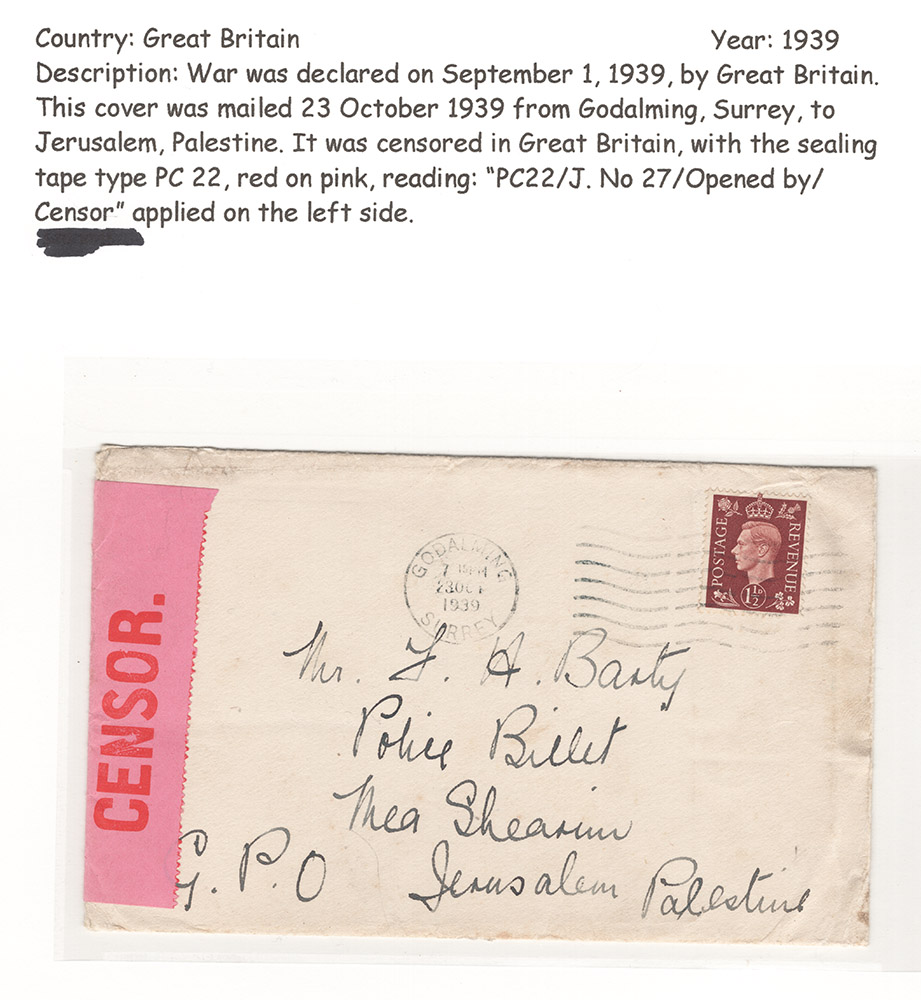 Country: Great Britain Year: 1939
Description: War was declared on September 1, 1939, by Great Britain.
This cover was mailed 23 October 1939 from Godalming, Surrey, to
Jerusalem, Palestine. It was censored in Great Britain, with the sealing
tape type PC 22, red on pink, reading: “PC22/J. No 27/Opened by/
Censor” applied on the left side.
POSTAGE REVENUE
1½D
GODALMING
7 PM
23 OCT
1939
SURREY
CENSOR.
Mr. F. A. Barty
Police Billet
Mea Shearim
G.P.O Jerusalem Palestine